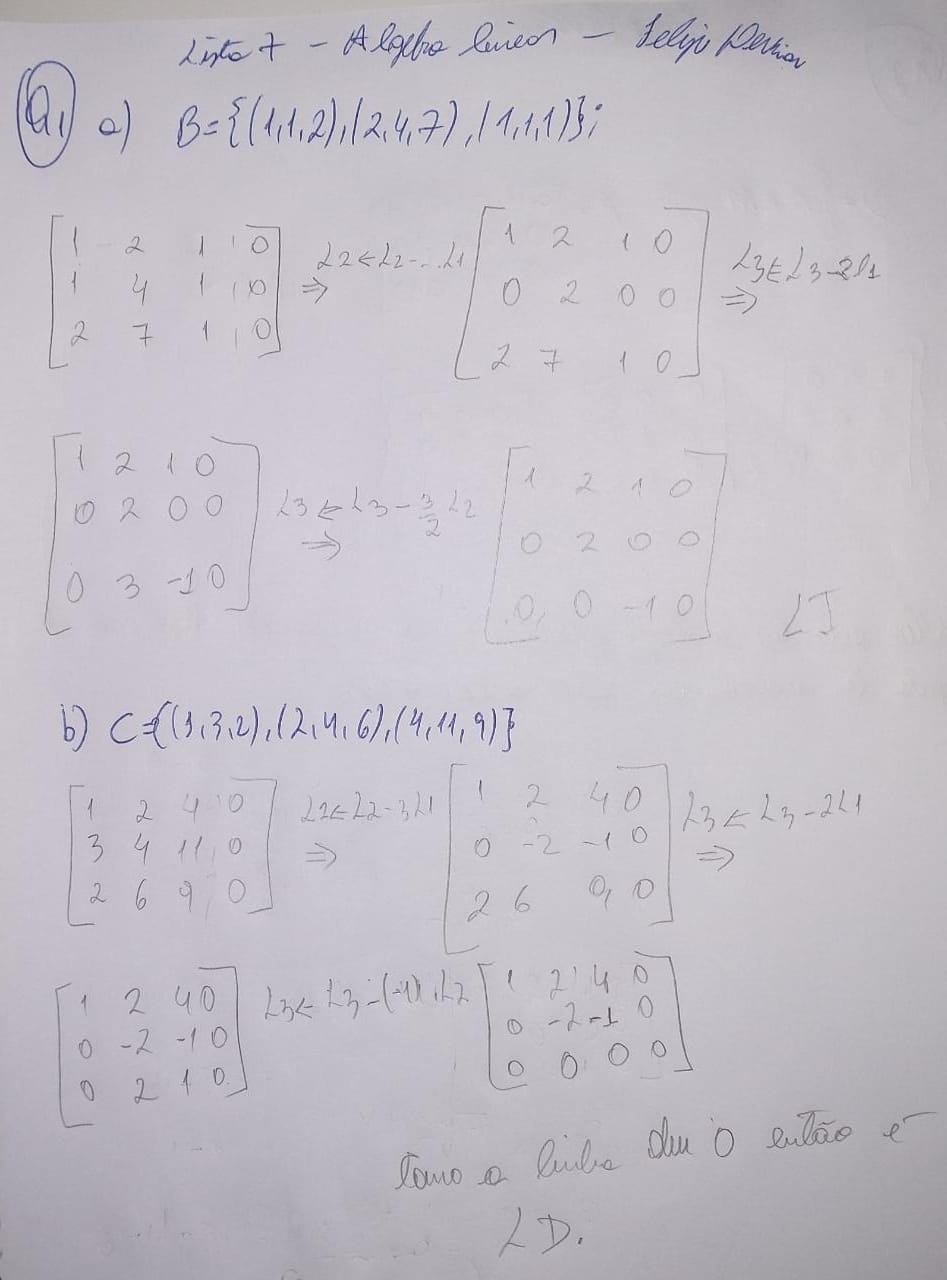 Lista 7 - Algebra linear - Felipe
Q1 a) B={(1,1,2),(2,4,7),(1,1,1)};
1 2 1 0
1 4 1 0
2 7 1 0
L2←L2-..L1
⇒
1 2 1 0
0 2 0 0
2 7 1 0
L3←L3-2L1
⇒
1 2 1 0
0 2 0 0
0 3 -1 0
L3←L3-3/2 L2
⇒
1 2 1 0
0 2 0 0
0 0 -1 0
LI
b) C={(1,3,2),(2,4,6),(4,11,9)}
1 2 4 0
3 4 11 0
2 6 9 0
L2←L2-3L1
⇒
1 2 4 0
0 -2 -1 0
2 6 9 0
L3←L3-2L1
⇒
1 2 4 0
0 -2 -1 0
0 2 1 0
L3←L3-(-1).L2
1 2 4 0
0 -2 -1 0
0 0 0 0
como a linha deu 0 então é
LD.